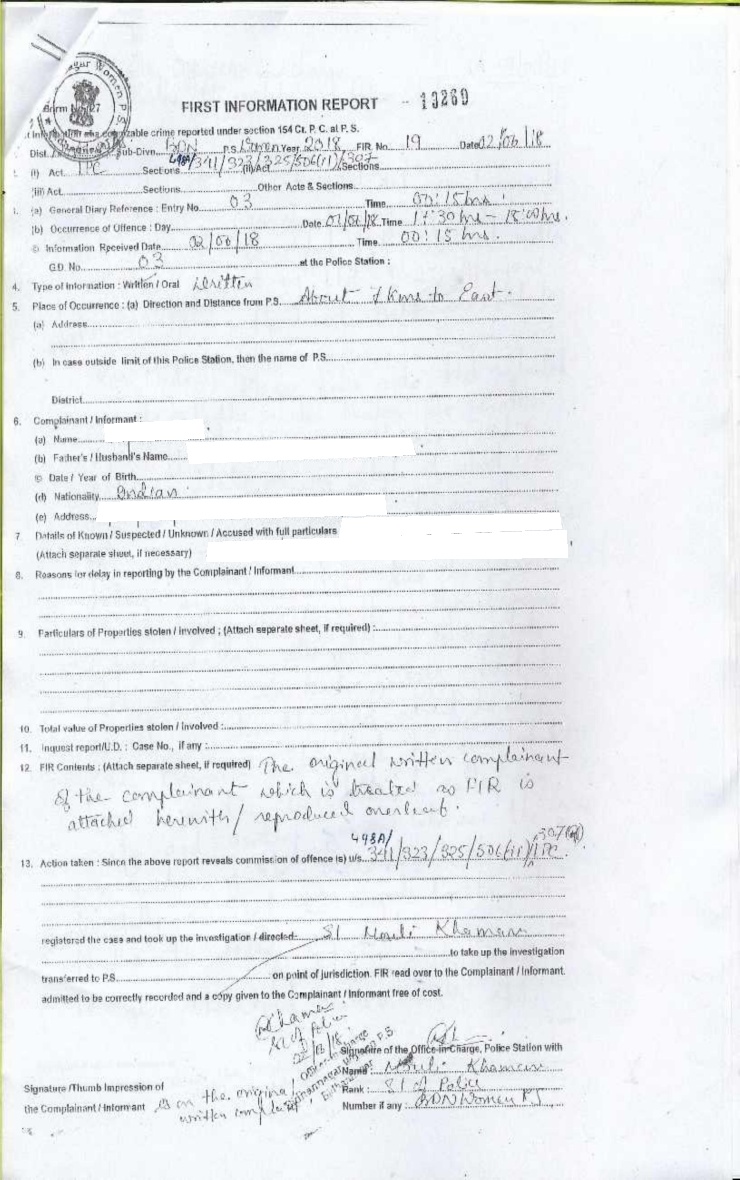 FIRST INFORMATION REPORT - 13260
cognizable crime reported under section 154 Cr. P. C. at P. S.
Sub-Divn. BDN P.S. Women Year 2018 FIR No. 19 Date 02/06/18
(i) Act IPC Sections 498A/341/323/325/506(11)/307 (ii) Act Sections
(iii) Act Sections Other Acts & Sections
(a) General Diary Reference : Entry No. 03 Time 00:15 hrs.
(b) Occurrence of Offence : Day Date 01/06/18 Time 17:30 hrs - 18:00 hrs.
© Information Received Date 02/06/18 Time 00:15 hrs.
G.D. No. 03 at the Police Station :
4. Type of Information : Written / Oral Written
5. Place of Occurrence : (a) Direction and Distance from P.S. About 1 Kms to East.
(a) Address
(b) In case outside limit of this Police Station, then the name of P.S.
District
6. Complainant / Informant :
(a) Name
(b) Father's / Husband's Name
© Date / Year of Birth
(d) Nationality Indian
(e) Address
7. Details of Known / Suspected / Unknown / Accused with full particulars
(Attach separate sheet, if necessary)
8. Reasons for delay in reporting by the Complainant / Informant
9. Particulars of Properties stolen / involved ; (Attach separate sheet, if required) :
10. Total value of Properties stolen / Involved :
11. Inquest report/U.D. : Case No., if any :
12. FIR Contents : (Attach separate sheet, if required) The original written complainant
of the complainant which is treated as FIR is
attached herewith/ reproduced overleaf.
13. Action taken : Since the above report reveals commission of offence (s) u/s. 498A/341/323/325/506(11)/307 IPC.
registered the case and took up the investigation / directed SI Mouli Khaman
to take up the investigation
transferred to P.S. on point of jurisdiction. FIR read over to the Complainant / Informant.
admitted to be correctly recorded and a copy given to the Complainant / Informant free of cost.
SI of Police
Officer in charge
Signature of the Office-in-Charge, Police Station with
Name : Mouli Khaman
Signature /Thumb Impression of
Rank : SI of Police
the Complainant / Informant is on the original written complaint
Number if any : BDN Women PS